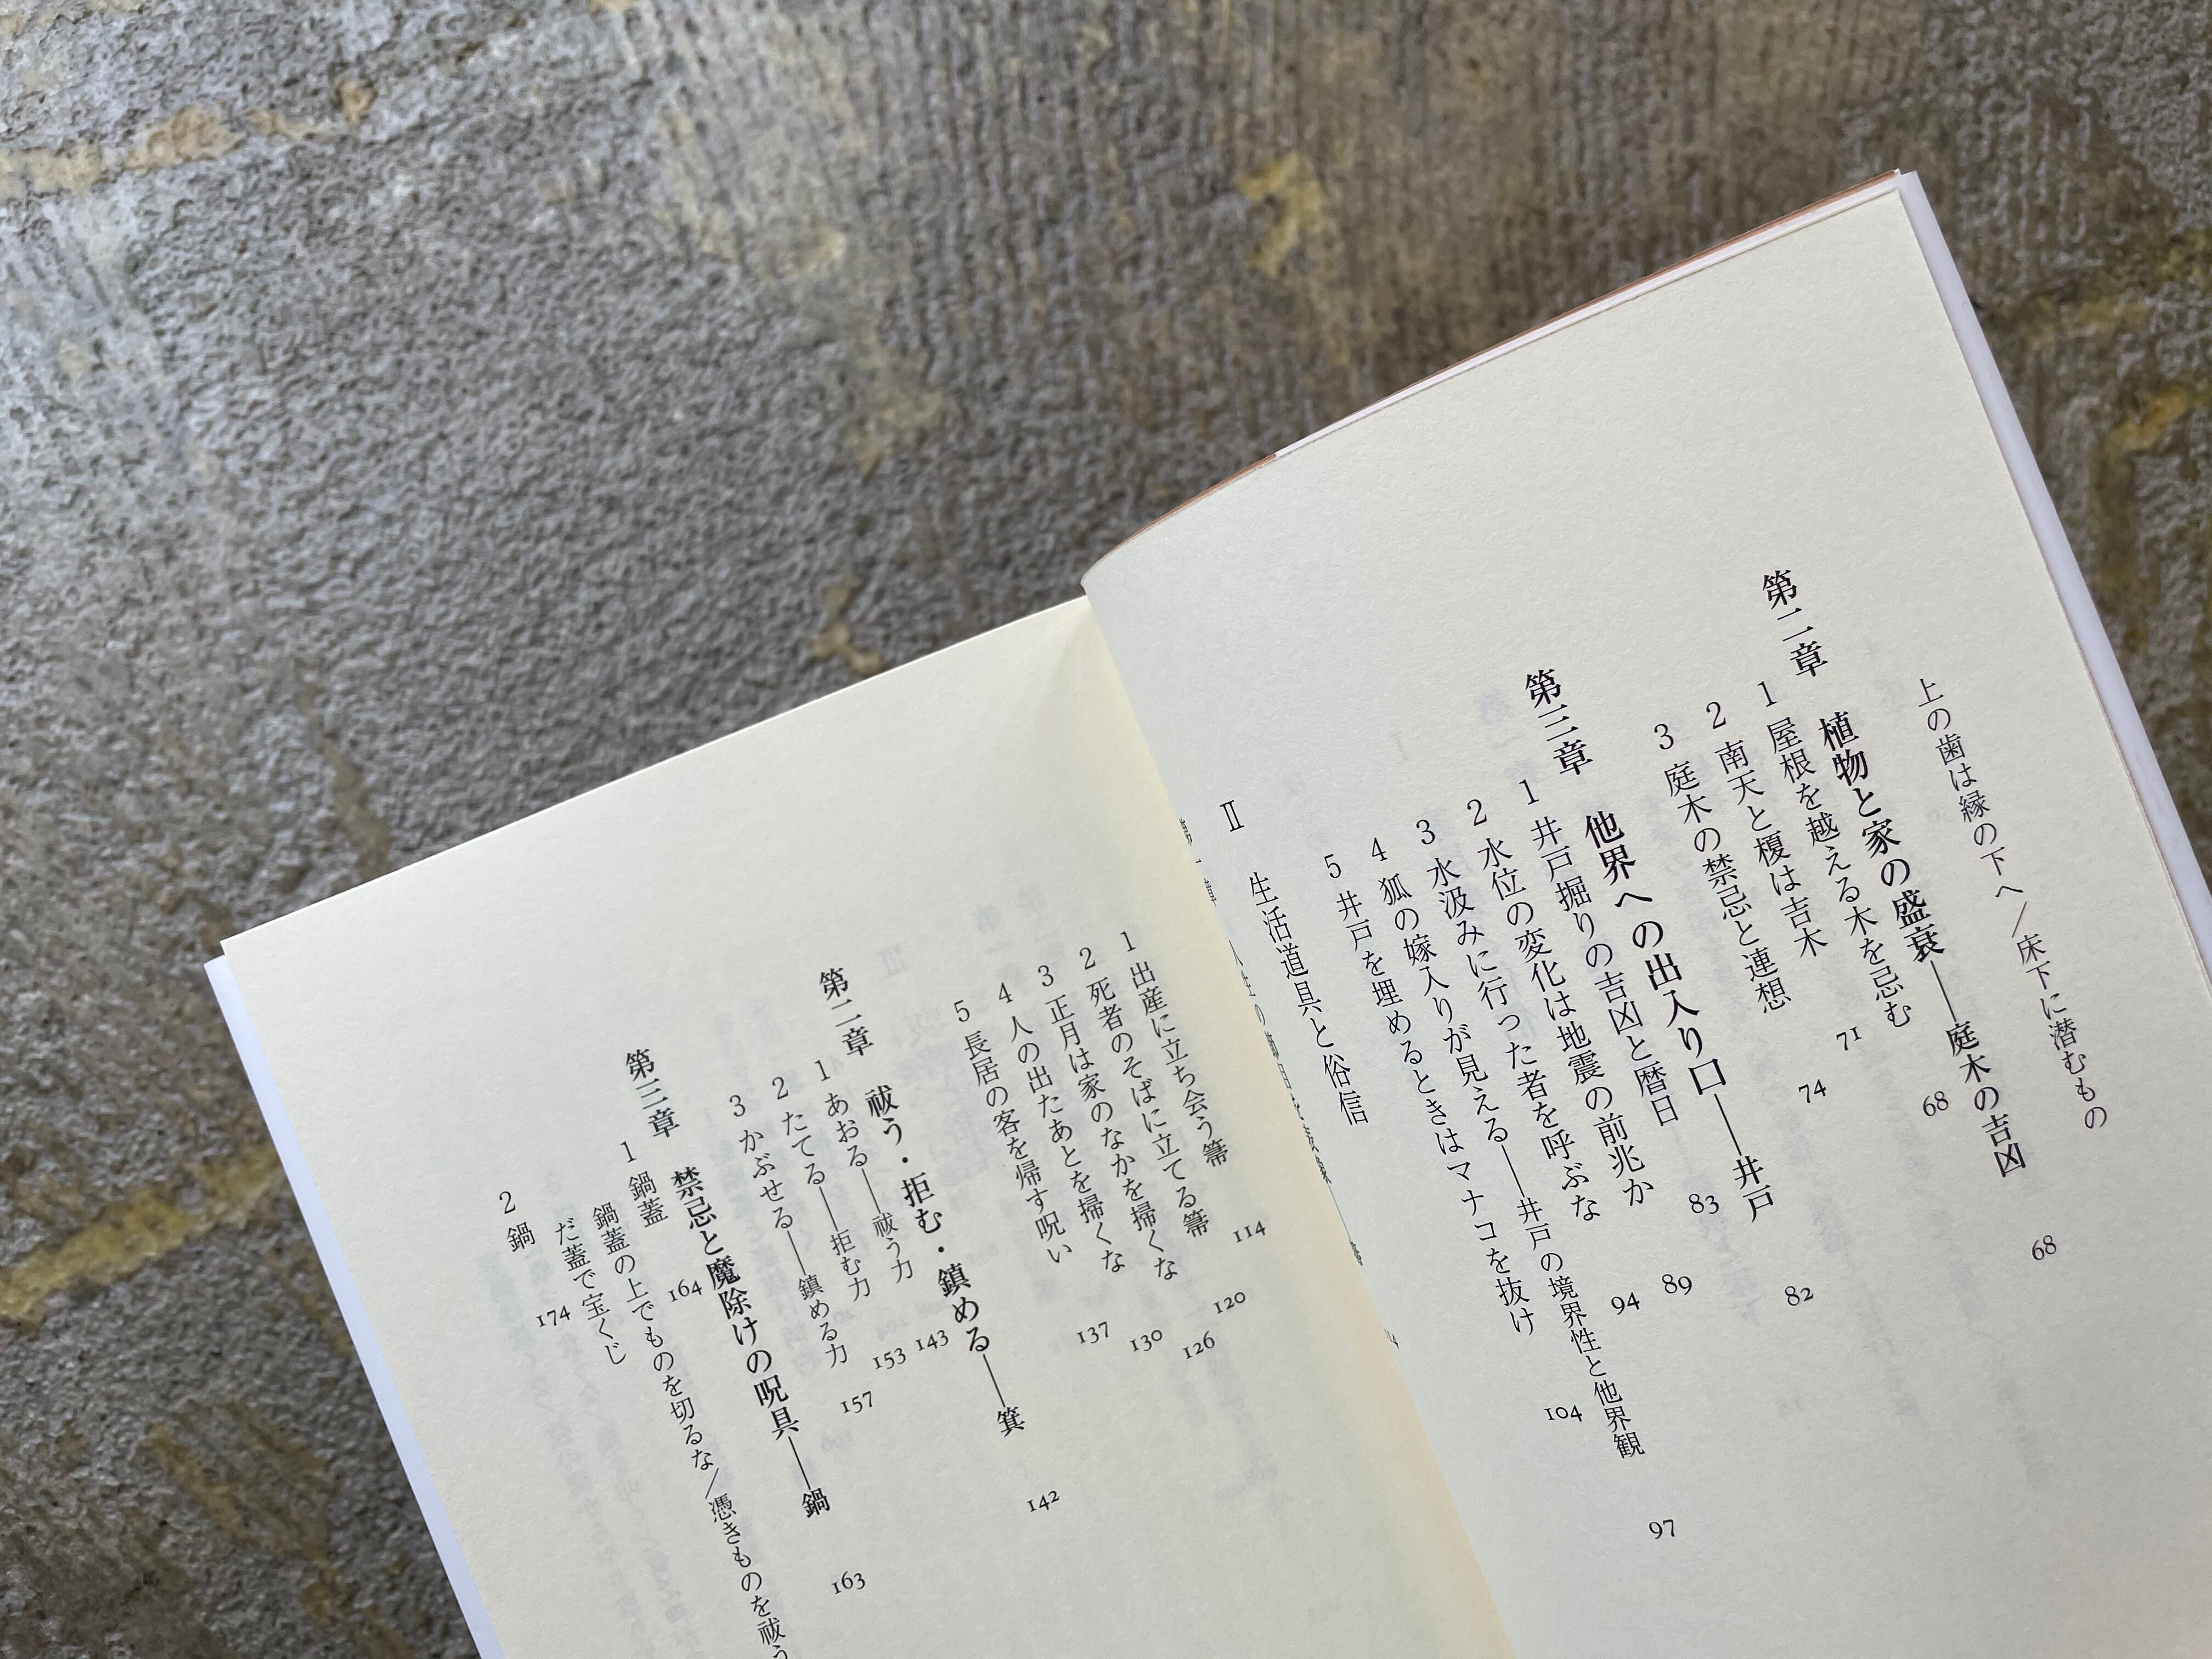 上の歯は縁の下へ/床下に潜むもの
第二章 植物と家の盛衰——庭木の吉凶 68
1 屋根を越える木を忌む 68
2 南天と榎は吉木 71
3 庭木の禁忌と連想 74
第三章 他界への出入り口——井戸 82
1 井戸掘りの吉凶と暦日 83
2 水位の変化は地震の前兆か 89
3 水汲みに行った者を呼ぶな 94
4 狐の嫁入りが見える——井戸の境界性と他界観 97
5 井戸を埋めるときはマナコを抜け 104
Ⅱ 生活道具と俗信
1 出産に立ち会う箒 114
2 死者のそばに立てる箒 120
3 正月は家のなかを掃くな 126
4 人の出たあとを掃くな 130
5 長居の客を帰す呪い 137
第二章 祓う・拒む・鎮める——箕 142
1 あおる——祓う力 143
2 たてる——拒む力 153
3 かぶせる——鎮める力 157
第三章 禁忌と魔除けの呪具——鍋 163
1 鍋蓋 164
鍋蓋の上でものを切るな/憑きものを祓う
だ蓋で宝くじ
2 鍋 174